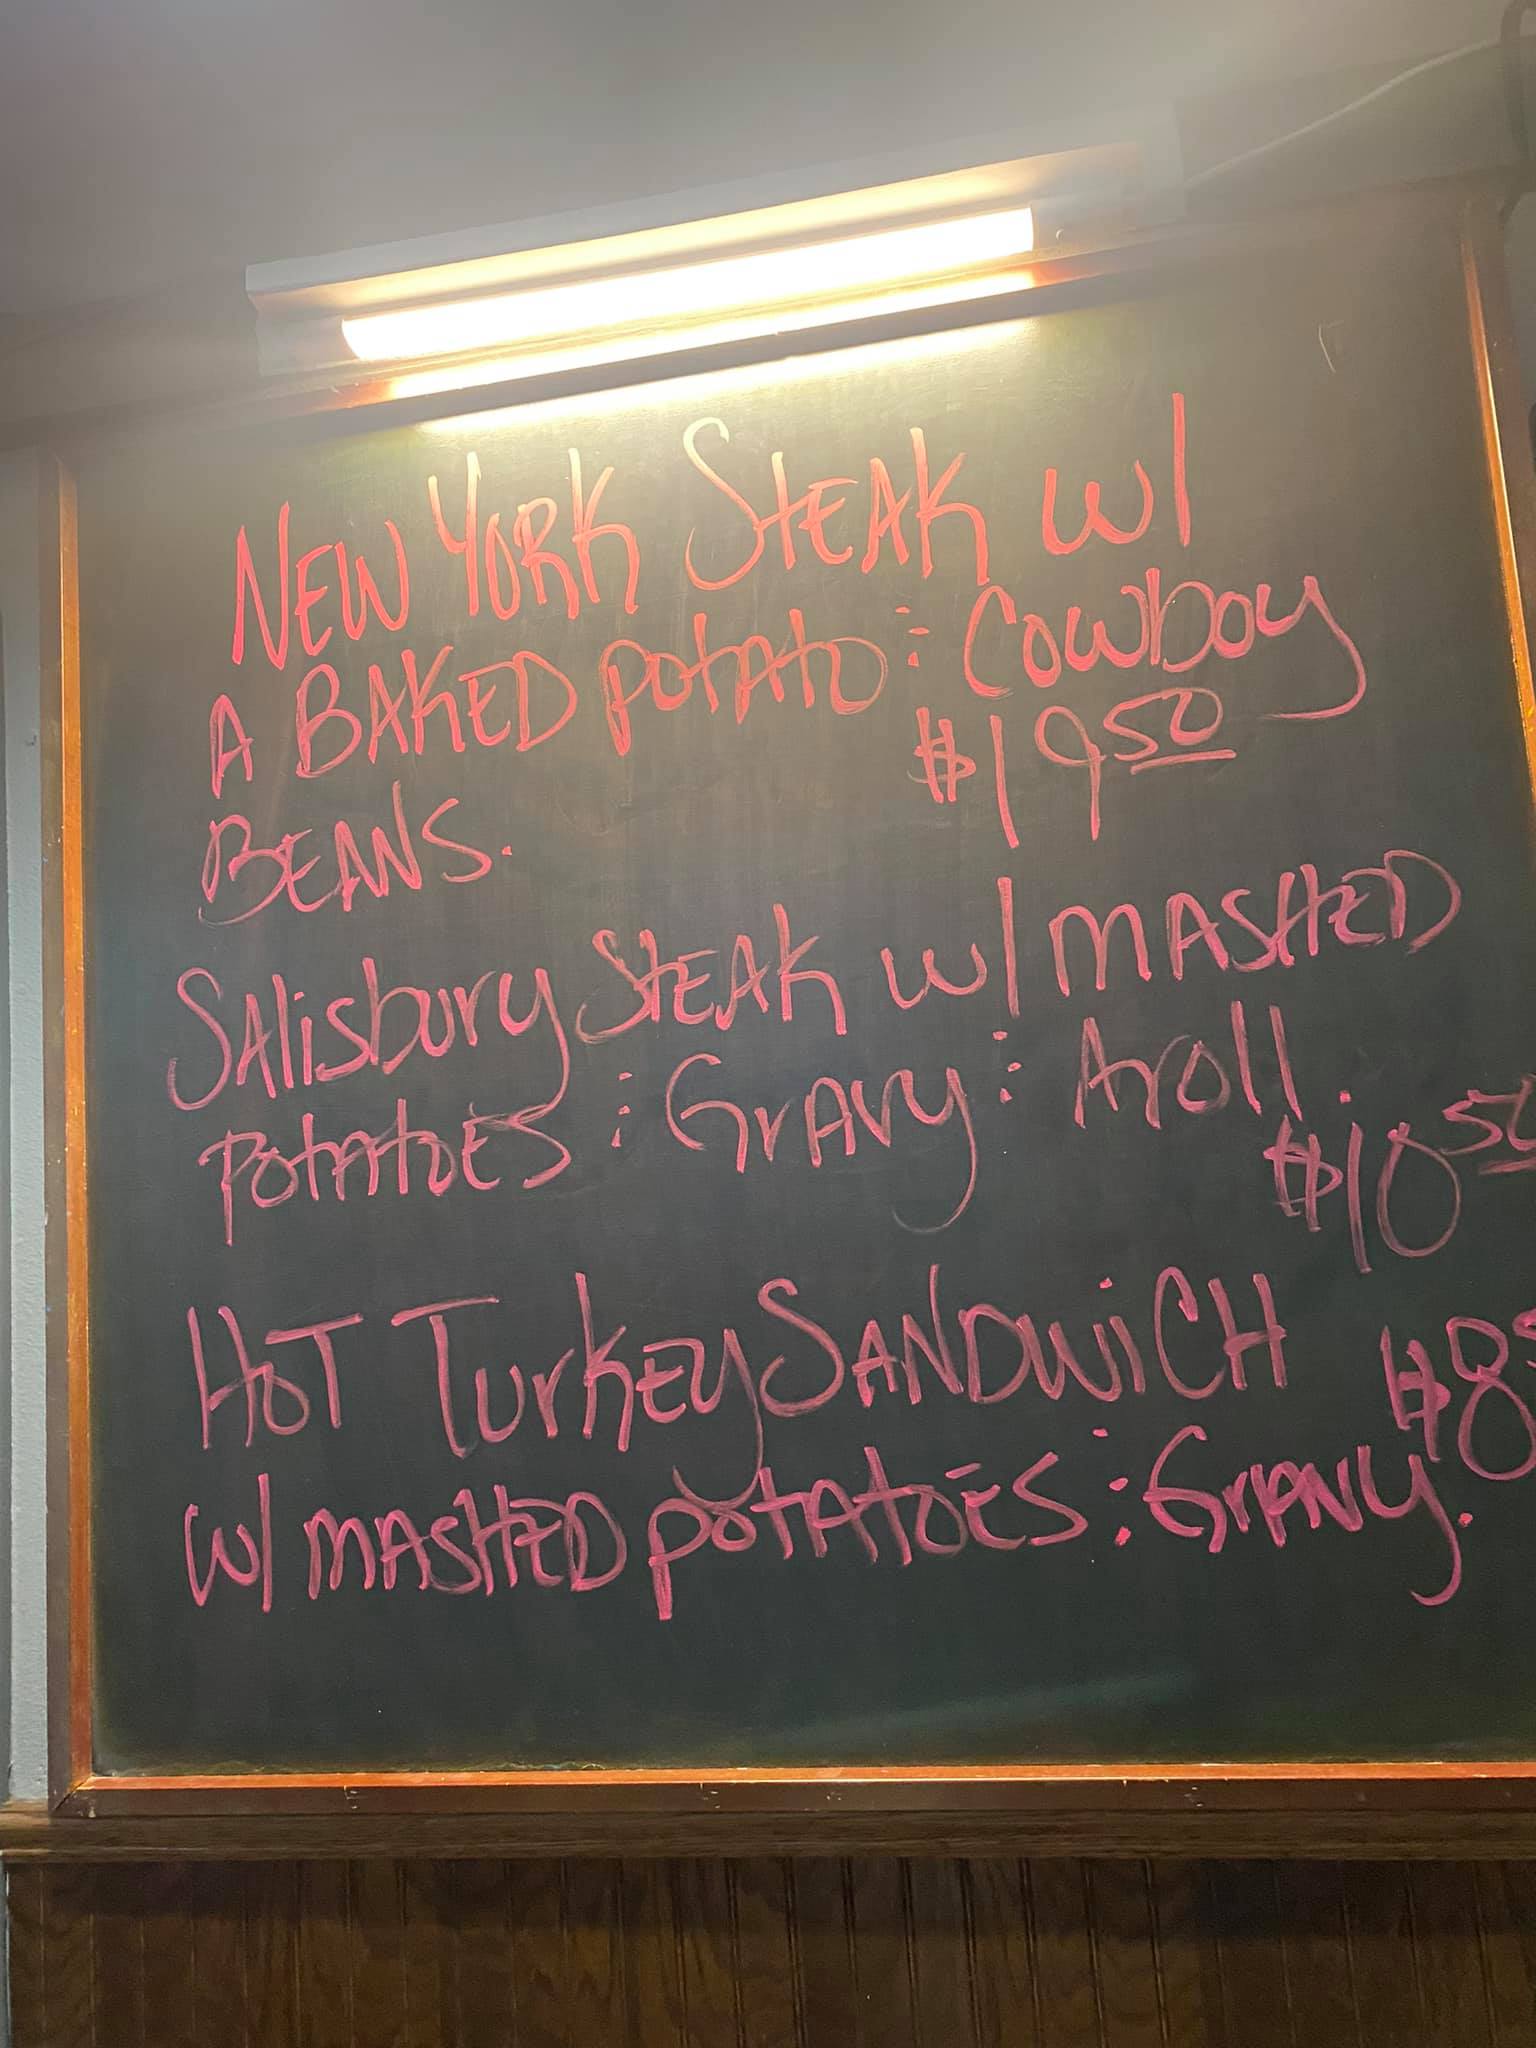 NEW YORK STEAK W/
A BAKED POTATO : COWBOY
BEANS. $19.50
SALISBURY STEAK W/ MASHED
POTATOES : GRAVY : A roll.
$10.50
HOT TURKEY SANDWICH $8
W/ MASHED POTATOES : GRAVY.